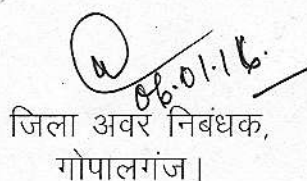 06.01.16.
जिला अवर निबंधक,
गोपालगंज।